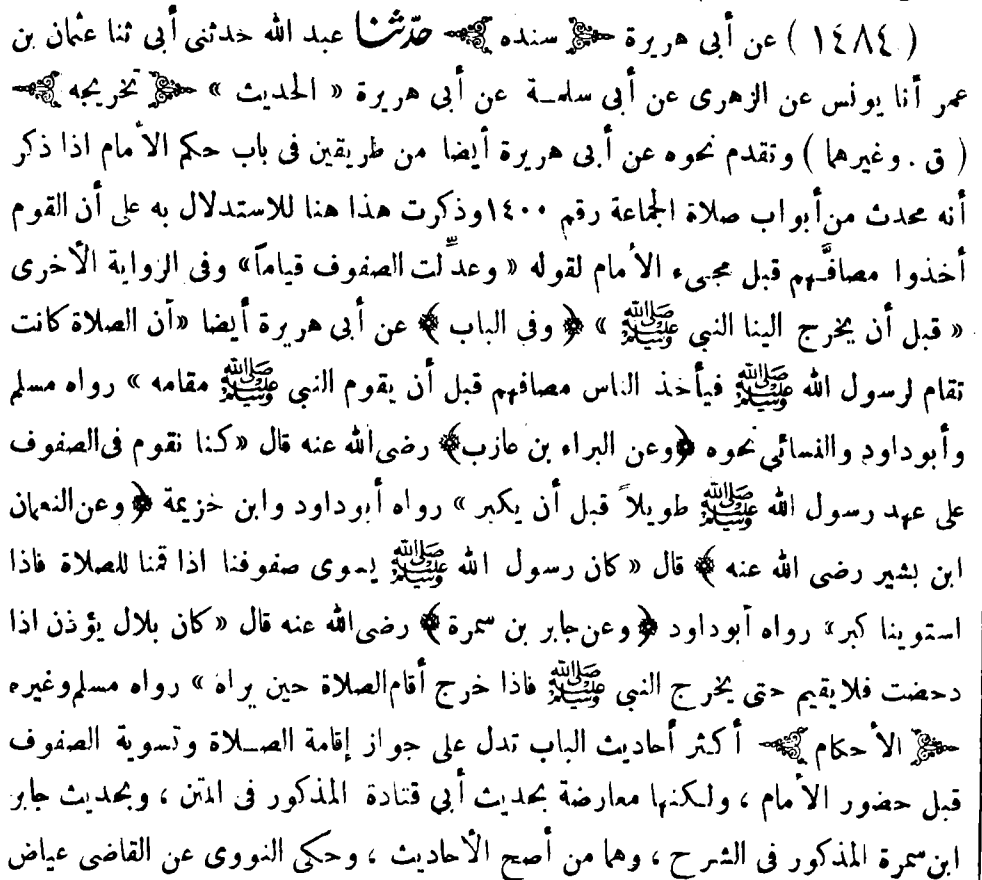 ( ١٤٨٤ ) عن أبى هريرة ﴿ سنده ﴾ حدّثنا عبد الله حدثنى أبى ثنا عثمان بن
عمر أنا يونس عن الزهرى عن أبى سلمة عن أبى هريرة « الحديث » ﴿ تخريجه ﴾
( ق . وغيرهما ) وتقدم نحوه عن أبى هريرة أيضا من طريقين فى باب حكم الأمام اذا ذكر
أنه محدث من أبواب صلاة الجماعة رقم ١٤٠٠ وذكرت هذا هنا للاستدلال به على أن القوم
أخذوا مصافَّهم قبل مجىء الأمام لقوله « وعدِّلت الصفوف قياماً» وفى الرواية الأخرى
« قبل أن يخرج الينا النبى ﷺ » ﴿ وفى الباب ﴾ عن أبى هريرة أيضا «أن الصلاة كانت
تقام لرسول الله ﷺ فيأخذ الناس مصافهم قبل أن يقوم النبى ﷺ مقامه » رواه مسلم
وأبوداود والنسائي نحوه ﴿وعن البراء بن عازب﴾ رضى الله عنه قال «كنا نقوم فى الصفوف
على عهد رسول الله ﷺ طويلاً قبل أن يكبر » رواه أبوداود وابن خزيمة ﴿ وعن النعمان
ابن بشير رضى الله عنه ﴾ قال « كان رسول الله ﷺ يسوى صفوفنا اذا قمنا للصلاة فاذا
استوينا كبر» رواه أبوداود ﴿ وعن جابر بن سمرة ﴾ رضى الله عنه قال «كان بلال يؤذن اذا
دحضت فلا يقيم حتى يخرج النبى ﷺ فاذا خرج أقام الصلاة حين يراه » رواه مسلم وغيره
﴿ الأحكام ﴾ أكثر أحاديث الباب تدل على جواز إقامة الصلاة وتسوية الصفوف
قبل حضور الأمام ، ولكنها معارضة بحديث أبى قتادة المذكور فى المتن ، وبحديث جابر
ابن سمرة المذكور فى الشرح ، وهما من أصح الأحاديث ، وحكى النووى عن القاضى عياض